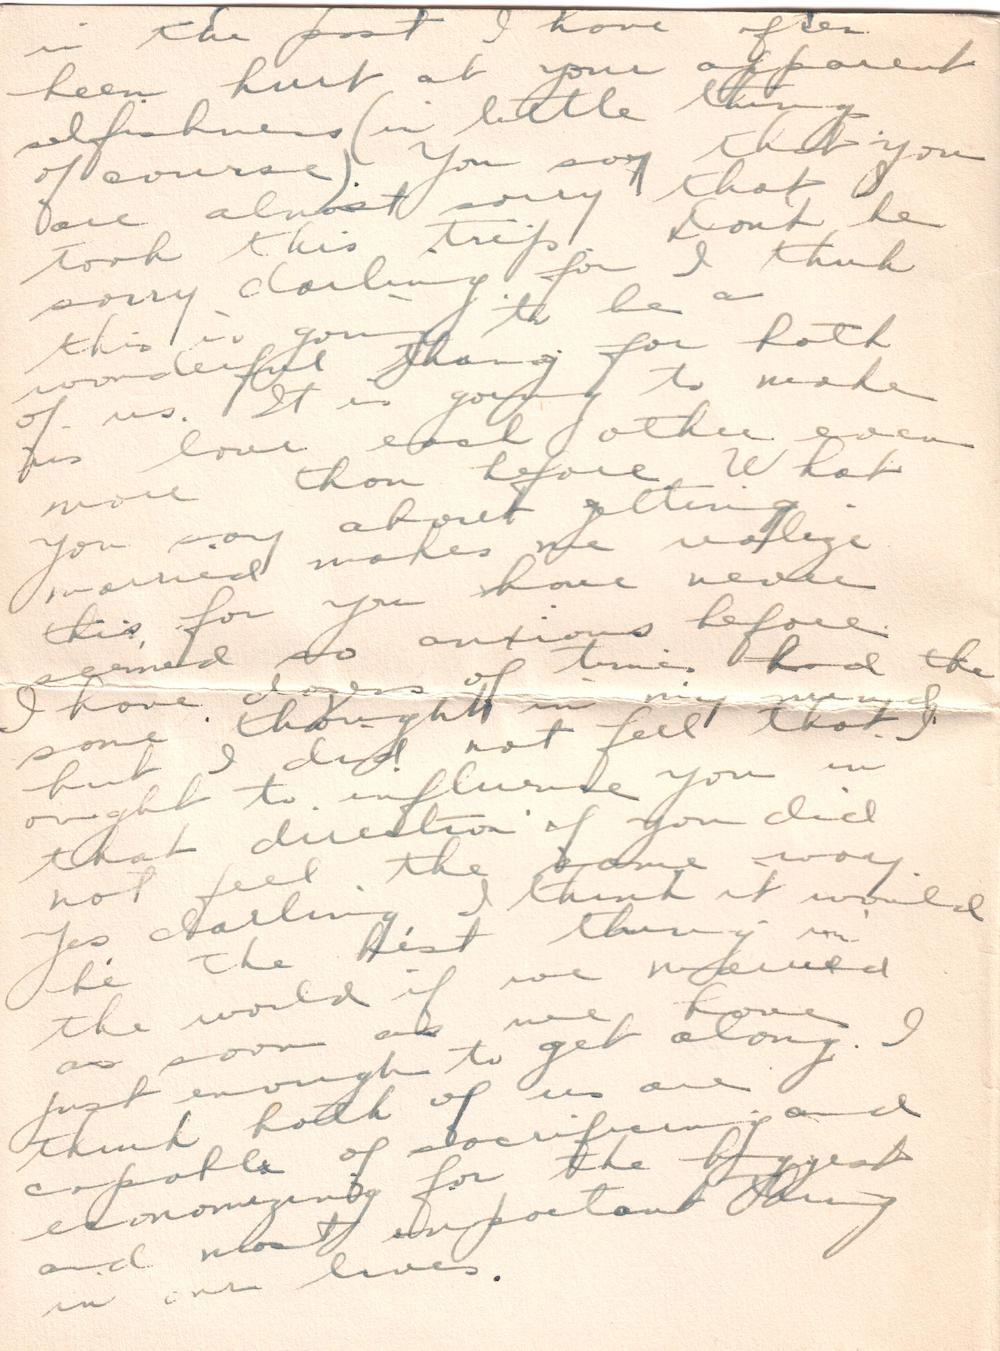 in the past I have often
been hurt at your apparent
selfishness (in little things
of course). You say that you
are almost sorry that I
took this trip. Dont be
sorry darling for I think
this is going to be a
wonderful thing for both
of us. It is going to make
us love each other even
more than before. What
you say about getting
married makes me realize
this, for you have never
seemed so anxious before.
I have dozens of times had the
same thought in my mind,
but I did not feel that I
ought to influence you in
that direction if you did
not feel the same way.
Yes darling I think it would
be the best thing in
the world if we married
as soon as we have
just enough to get along. I
think both of us are
capable of sacrificing and
economizing for the biggest
and most important thing
in our lives.